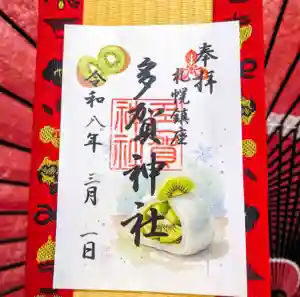 奉拝
札幌鎮座
多賀神社
令和八年三月一日